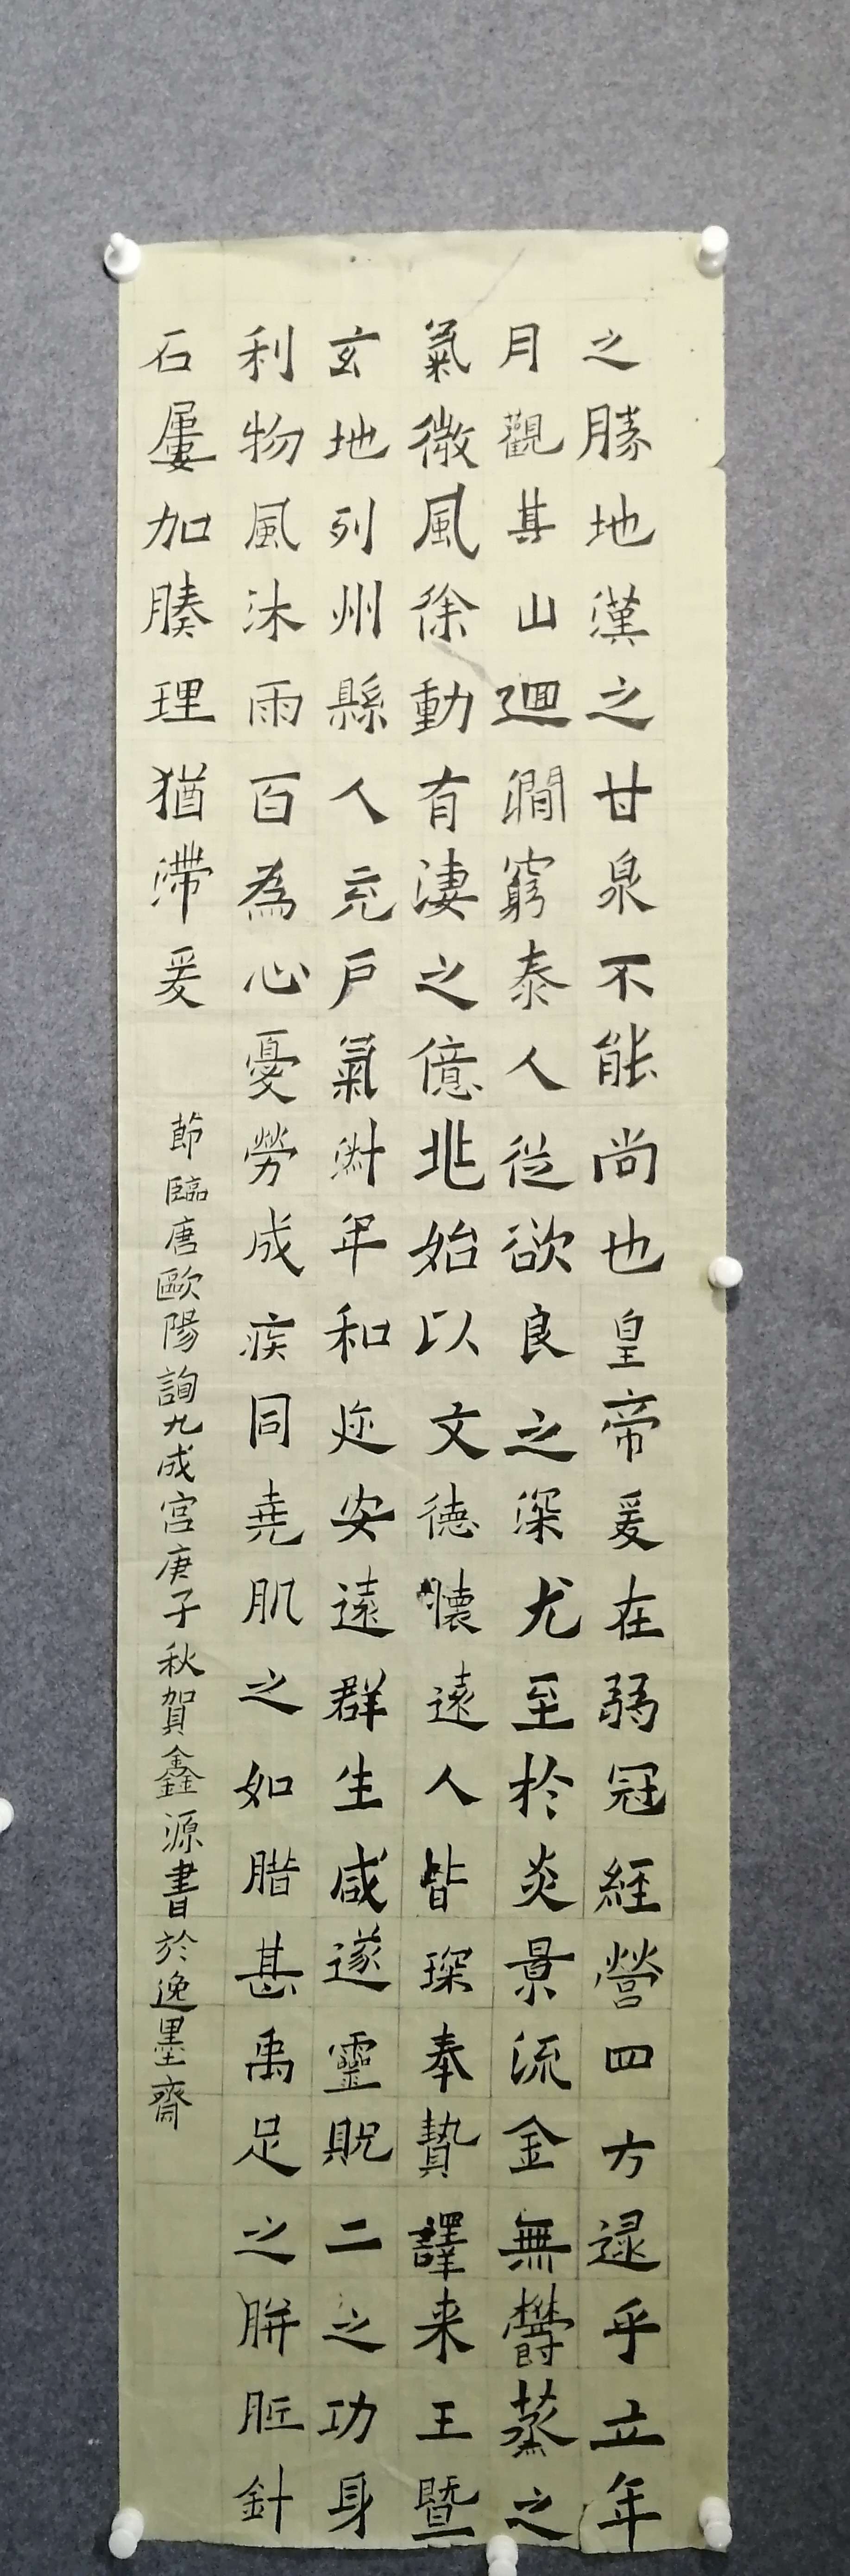 之勝地漢之甘泉不能尚也皇帝爰在弱冠經營四方逯乎立年
月觀其山迴澗窮泰人從欲良之深尤至於炎景流金無欝蒸之
氣微風徐動有淒之億兆始以文德懷遠人皆琛奉贄譯来王暨
玄地列州縣人充戶氣淋年和迩安遠群生咸遂靈貺二之功身
利物風沐雨百為心憂勞成疾同堯肌之如腊甚禹足之胼胝針
石屢加腠理猶滯爰
節臨唐歐陽詢九成宮庚子秋賀鑫源書於逸墨齋